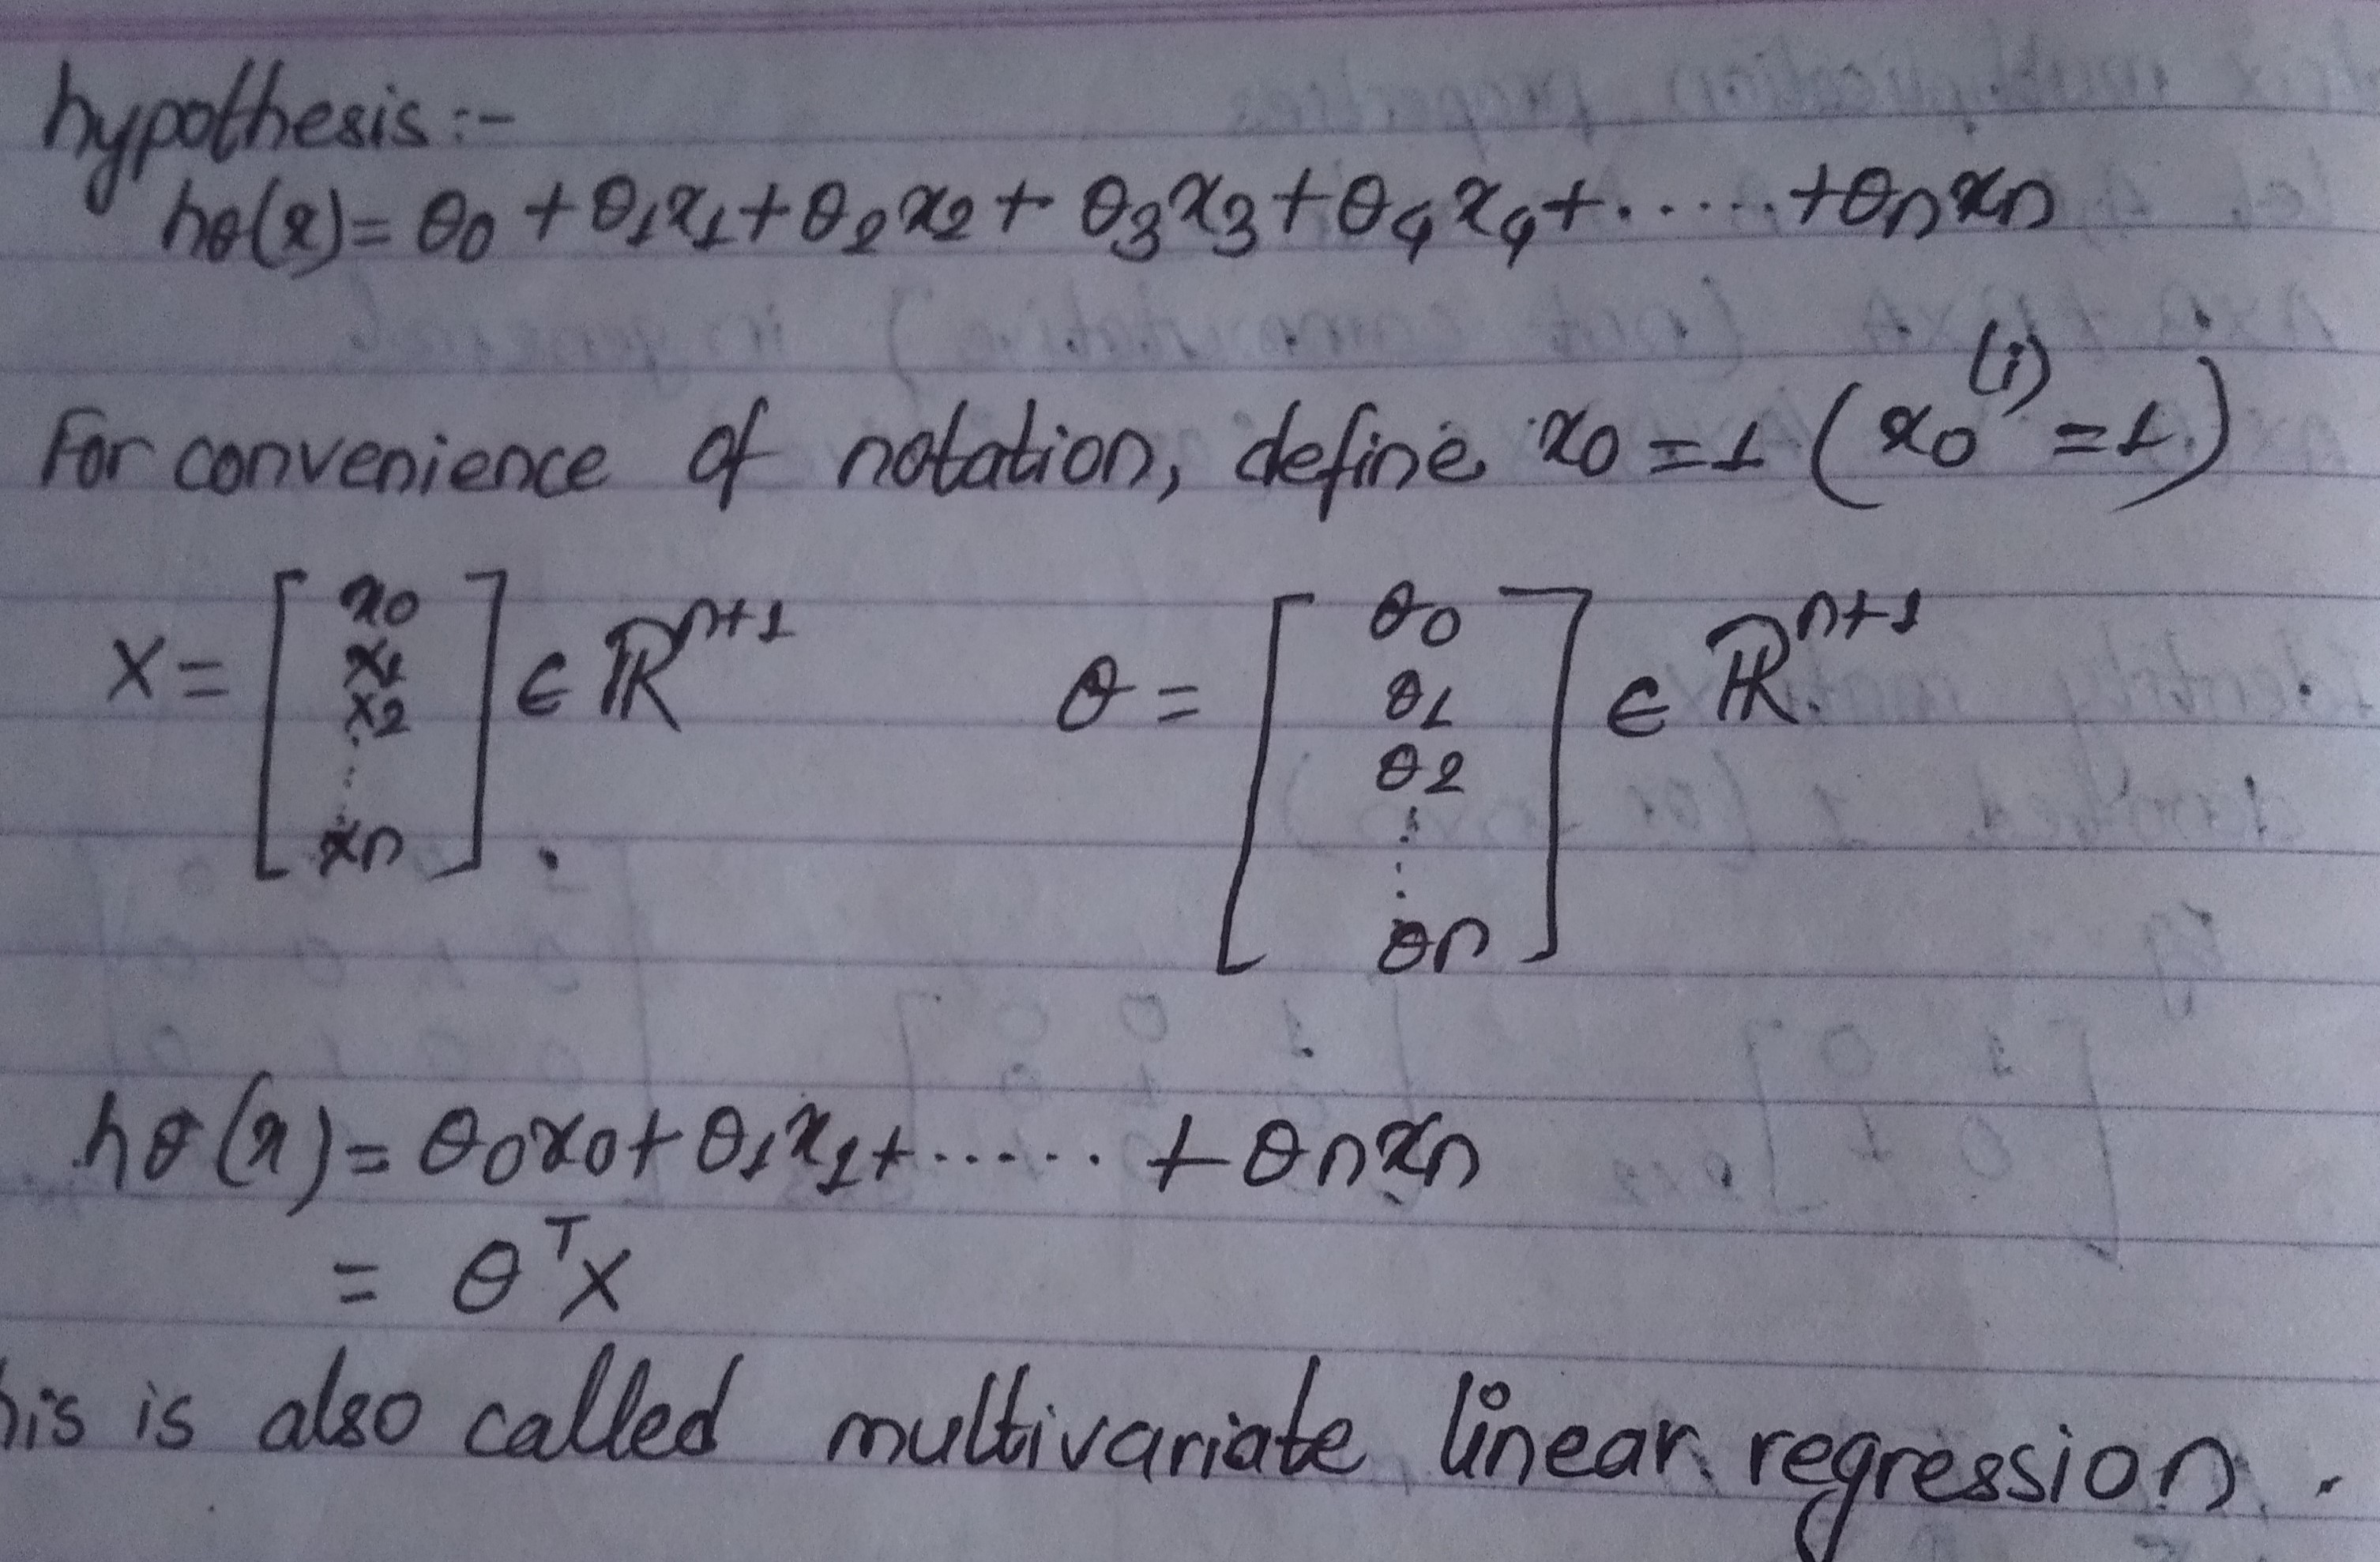 hypothesis:-
hθ(x) = θ0 + θ1x1 + θ2x2 + θ3x3 + θ4x4 + ...... + θnxn
For convenience of notation, define x0 = 1 (x0^(i) = 1)
X = [x0 x1 x2 ⋮ xn] ∈ ℝ^(n+1) θ = [θ0 θ1 θ2 ⋮ θn] ∈ ℝ^(n+1).
hθ(x) = θ0x0 + θ1x1 + ...... + θnxn
= θ^T X
his is also called multivariate linear regression.